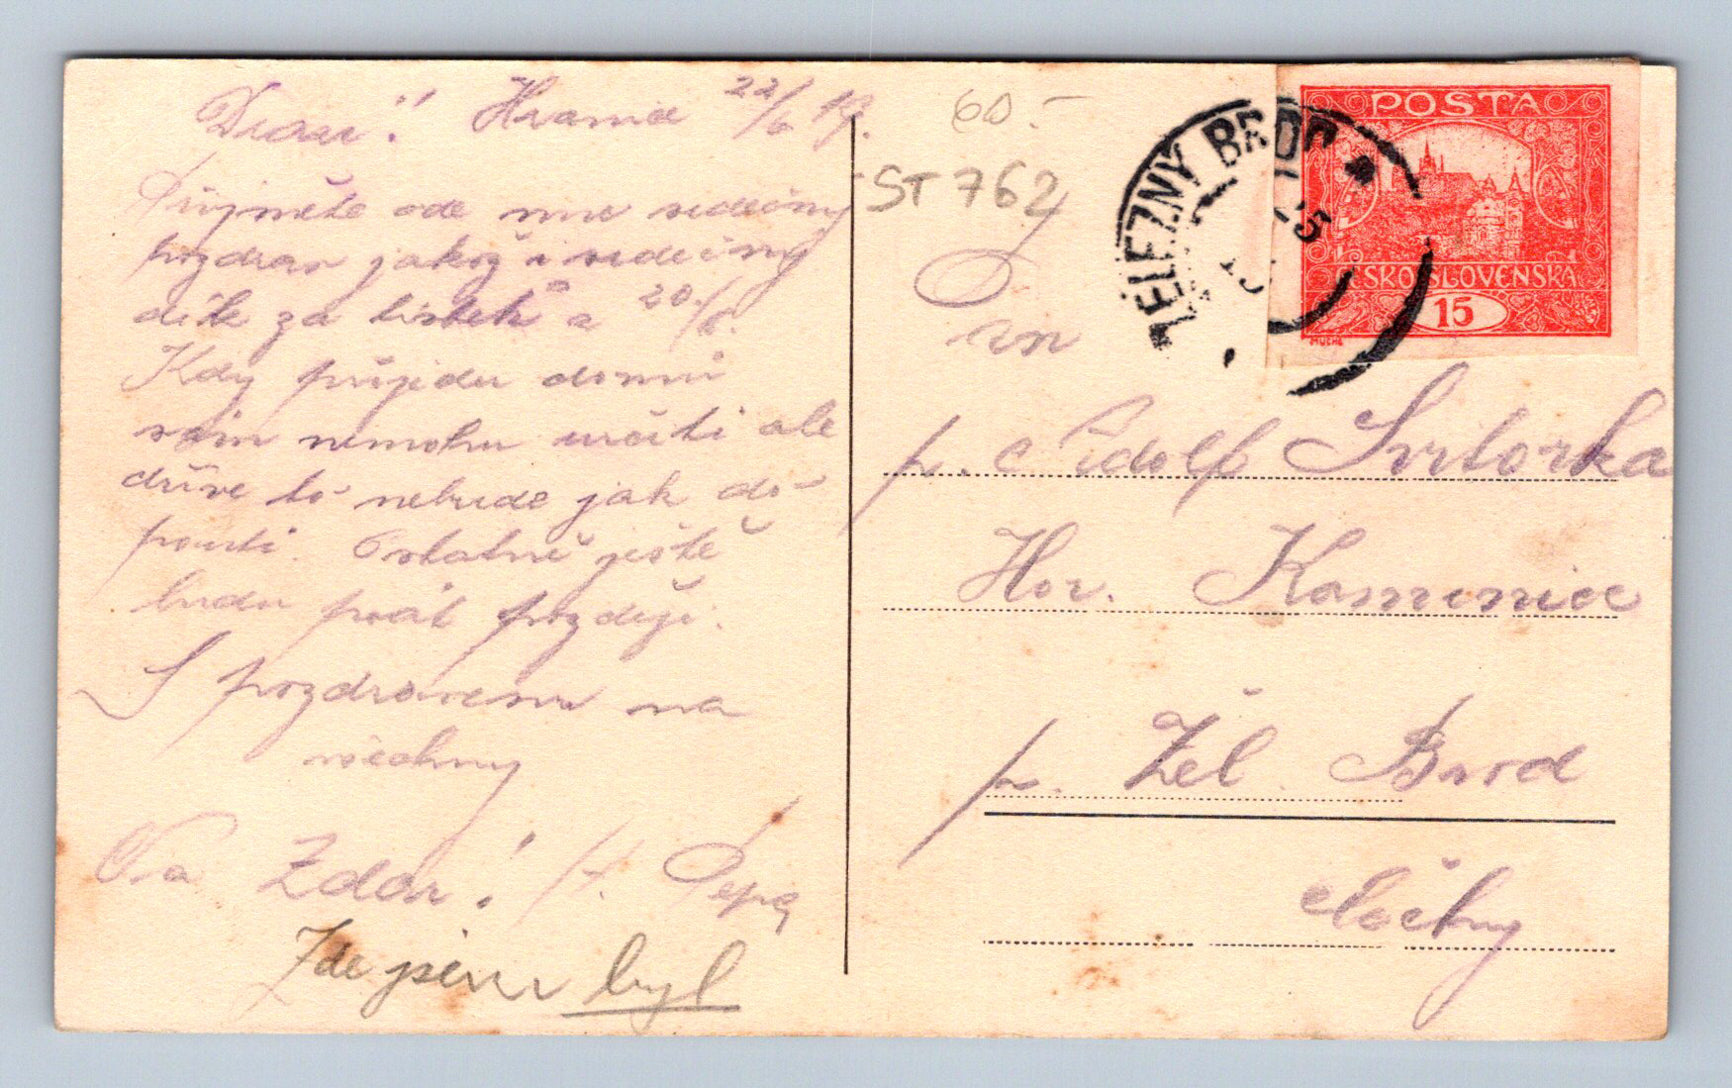 Drazí! Hranice 22/6 19.
Přijměte ode mne srdečný
pozdrav jakož i srdečný
dík za lístek z 20./6.
Kdy přijedu domů
sám nemohu určiti ale
dříve to nebude jak do
pouti. Ostatně ještě
budu psát později.
S pozdravem na
všechny
Na Zdar! Pepa
Zde jsem byl
60.-
ST 762
P
an
p. Adolf Svitorka
Hor. Kamenice
p. Žel. Brod
Čechy
ŽELEZNÝ BROD
POŠTA
ČESKO-SLOVENSKÁ
15
MUCHA